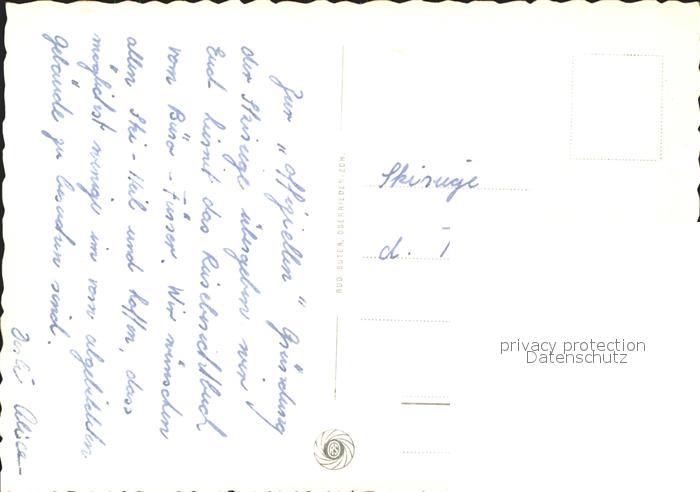 Zur "offiziellen" Gründung
der Skiriege übergeben wir
Euch hiermit das Reiseberichtbuch
vom Büro - Füsser. Wir wünschen
allen Ski-Heil und hoffen, dass
möglichst wenige im vorn abgebildeten
Gebäude zu besuchen sind.
RUD. SUTER, OBERRIEDEN-ZCH.
Skiriege
d. T
privacy protection
Datenschutz